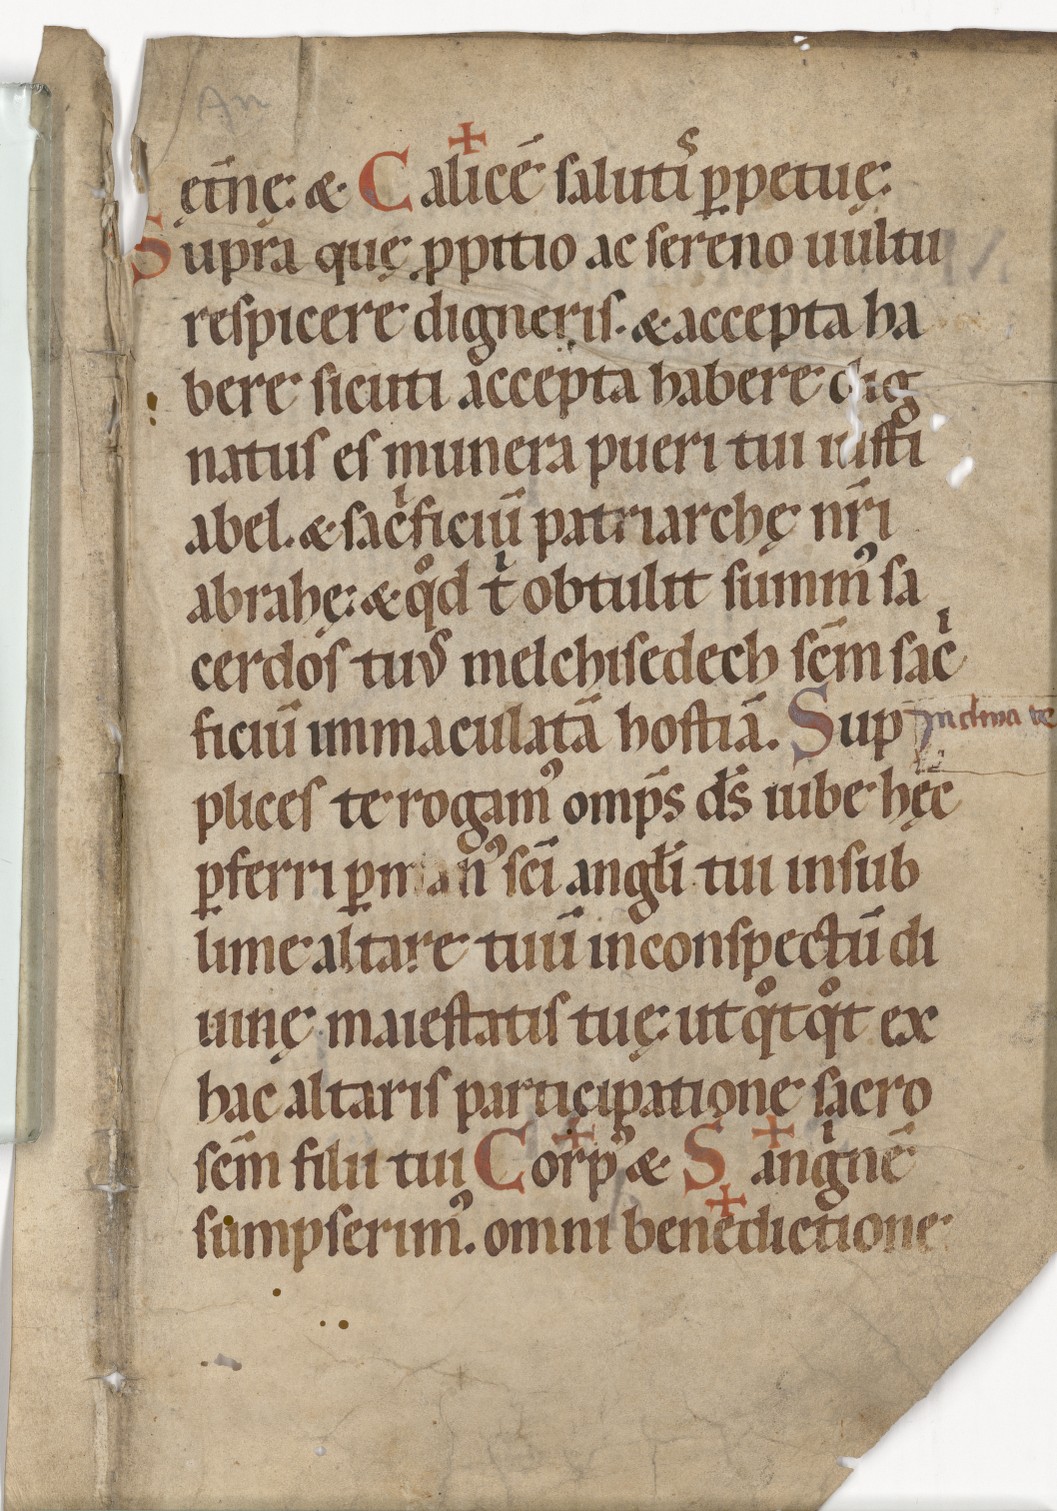 An
ęt̄nę: & Calicē salutiᷤ ꝑpetuę:
Supra quę ꝓpitio ac sereno uultu
respicere digneris. & accepta ha
bere sicuti accepta habere dig
natus es munera pueri tui iusti
abel. & sacͥficiū patriarchę nr̄i
abrahę: & qͦd tͥ obtulit summꝰ sa
cerdos tuus melchisedech sc̄m sacͥ
ficiū immaculatā hostiā. Sup Inclina te
plices te rogamꝰ omp̄s ds̄ iube hęc
ꝑferri ꝑ manꝰ sc̄i angl̄i tui in sub
lime altare tuū in conspectū di
uinę maiestatis tuę: ut qͦtqͦt ex
hac altaris participatione sacro
sc̄m filii tui Corpꝰ & Sangͥnē
sumpserimꝰ. omni benedictione